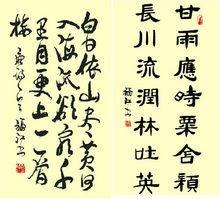 甘雨應時粟含穎
長川流潤林吐英
白日依山尽黄河
入海流欲穷千
里目更上一層
楼